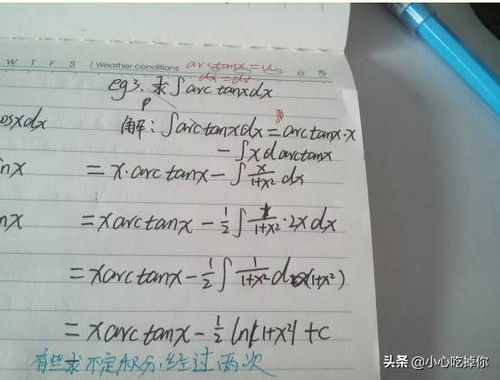 W T F S Weather conditions arctanx=u
dx=dv
eg3. 求∫arctanxdx
osxdx
解:∫arctanxdx=arctanx·x
-∫xdarctanx
inx
=x·arctanx-∫x/(1+x²)dx
nx
=xarctanx-1/2∫1/(1+x²)·2xdx
=xarctanx-1/2∫1/(1+x²)d(1+x²)
=xarctanx-1/2ln|1+x²|+c
有些求不定积分,经过两次
头条 @小心吃掉你